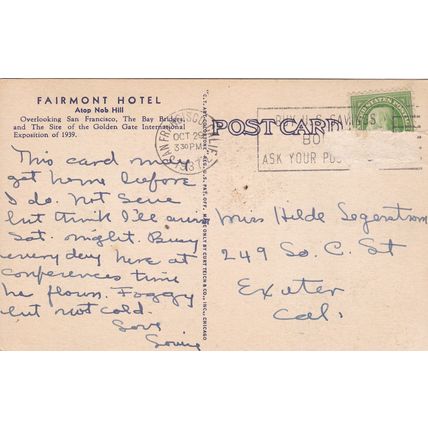 FAIRMONT HOTEL
Atop Nob Hill
Overlooking San Francisco, The Bay Bridges
and The Site of the Golden Gate International
Exposition of 1939.
This card may
get home before
I do. Not sure
but think I'll arrive
Sat. night. Busy
every day here at
conferences time
he flown. Foggy
but not cold.
Love
C. T. ART-COLORTONE REG. U.S. PAT. OFF. MADE ONLY BY CURT TEICH & CO., INC., CHICAGO
POST CARD
SAN FRANCISCO CALIF.
OCT 29
3 30 PM
193
BUY U.S. SAVINGS
BO
ASK YOUR PO
UNITED STATES POSTAGE
Miss Hilde Segerstrom
249 So. C. St
Exeter
Cal.